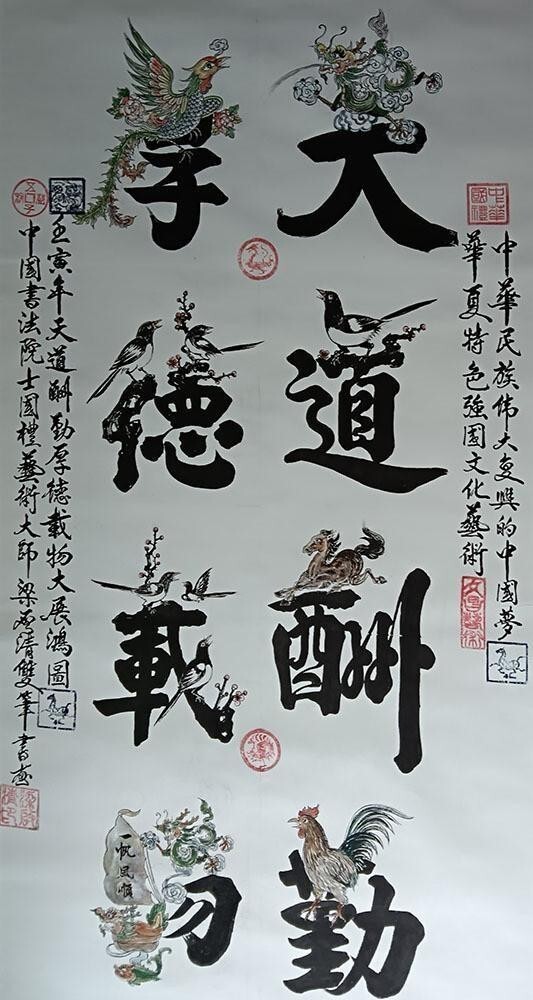 中華國禮
中華民族伟大复興的中國夢
華夏特色強國文化藝術
天道酬勤
厚德載物
一帆風順
壬寅年天道酬勤厚德載物大展鴻圖
中國書法院士國禮藝術大師梁清雙筆書画